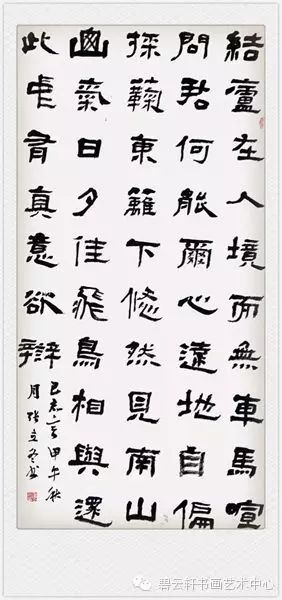 結廬在人境而無車馬喧
問君何能爾心遠地自偏
採鞠東籬下悠然見南山
幽氣日夕佳飛鳥相與還
此處有真意欲辯
已忘言 甲午秋
月 張立冬書
碧云轩书画艺术中心